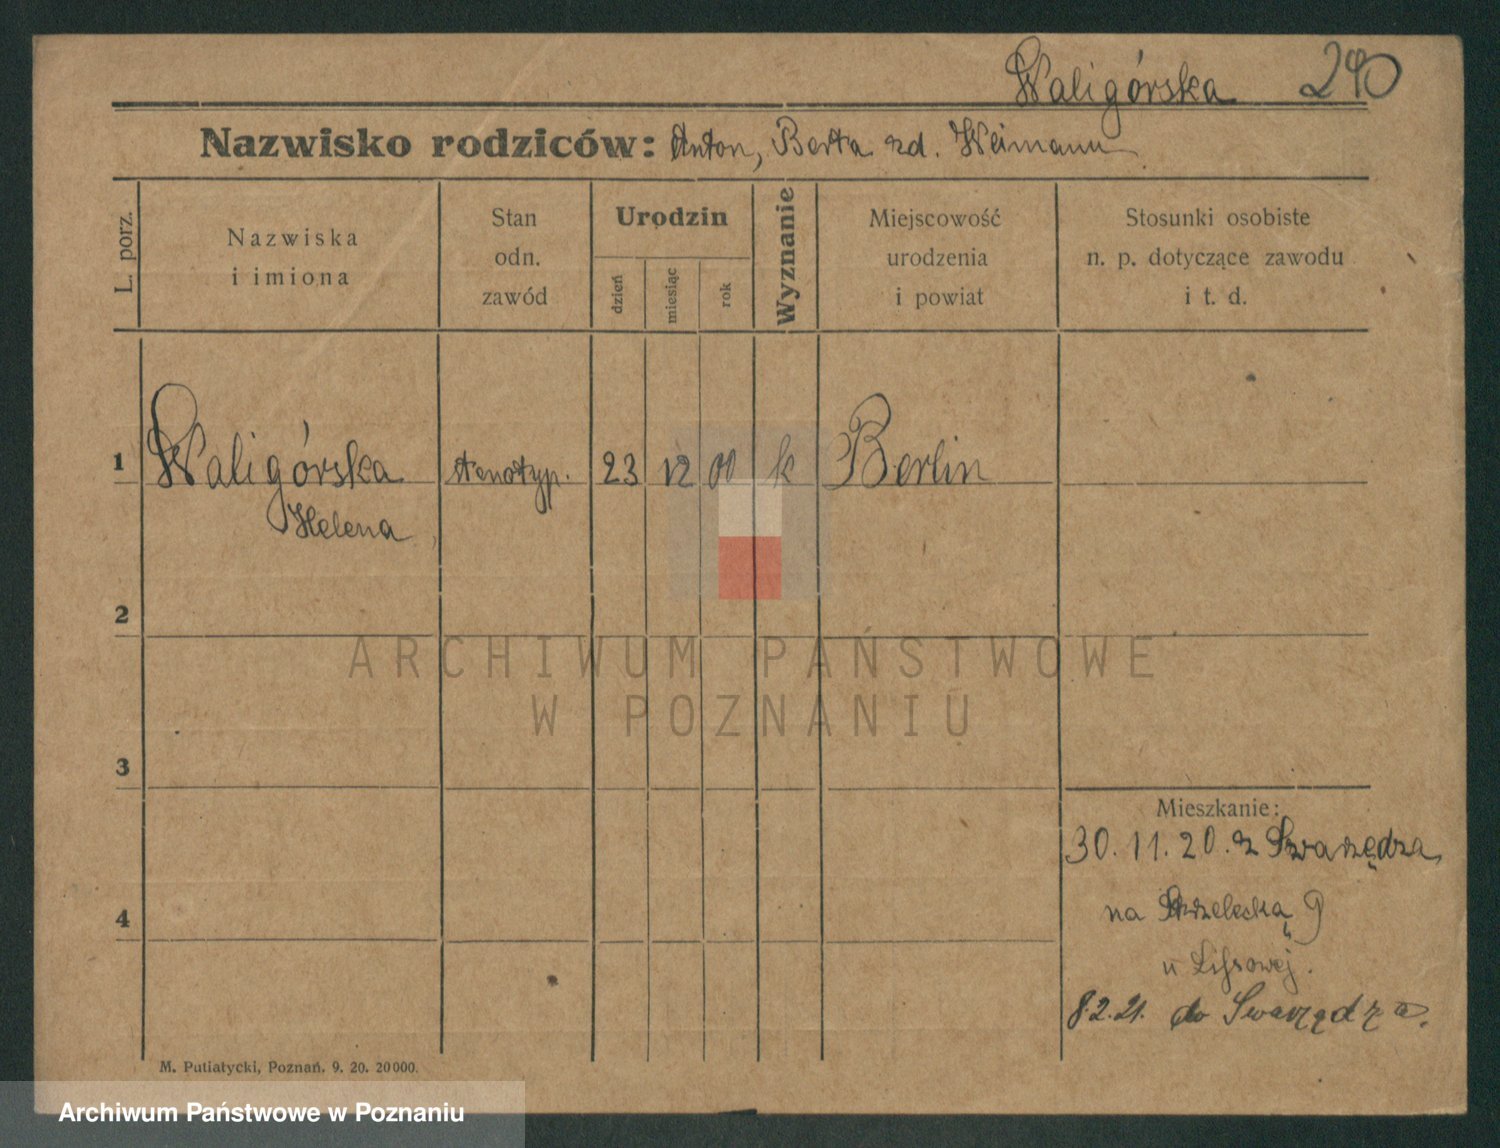 Waligórska 290
Nazwisko rodziców: Anton, Berta zd. Weimann
L. porz.
Nazwiska
i imiona
Stan
odn.
zawód
Urodzin
dzień
miesiąc
rok
Wyznanie
Miejscowość
urodzenia
i powiat
Stosunki osobiste
n. p. dotyczące zawodu
i t. d.
1 Waligórska stenotyp. 23 12 00 k Berlin
Helena
2
3
4
Mieszkanie:
30.11.20. z Swarzędza
na Strzelecką 9
u
8.2.21. do Swarzędza.
M. Putiatycki, Poznań. 9. 20. 20000.
ARCHIWUM PAŃSTWOWE
W POZNANIU
Archiwum Państwowe w Poznaniu